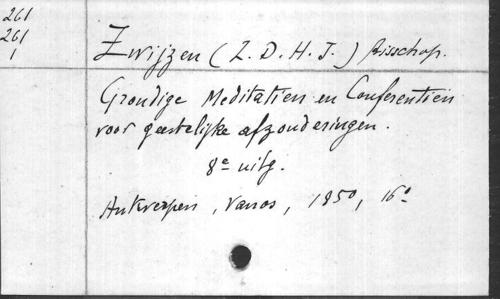 261
261
1
Zwijzen (Z. D. H. J.) Bisschop.
Grondige Meditatien en Conferentien
voor geestelijke afzonderingen.
8e uitg.
Antwerpen, Vanos, 1850, 16°